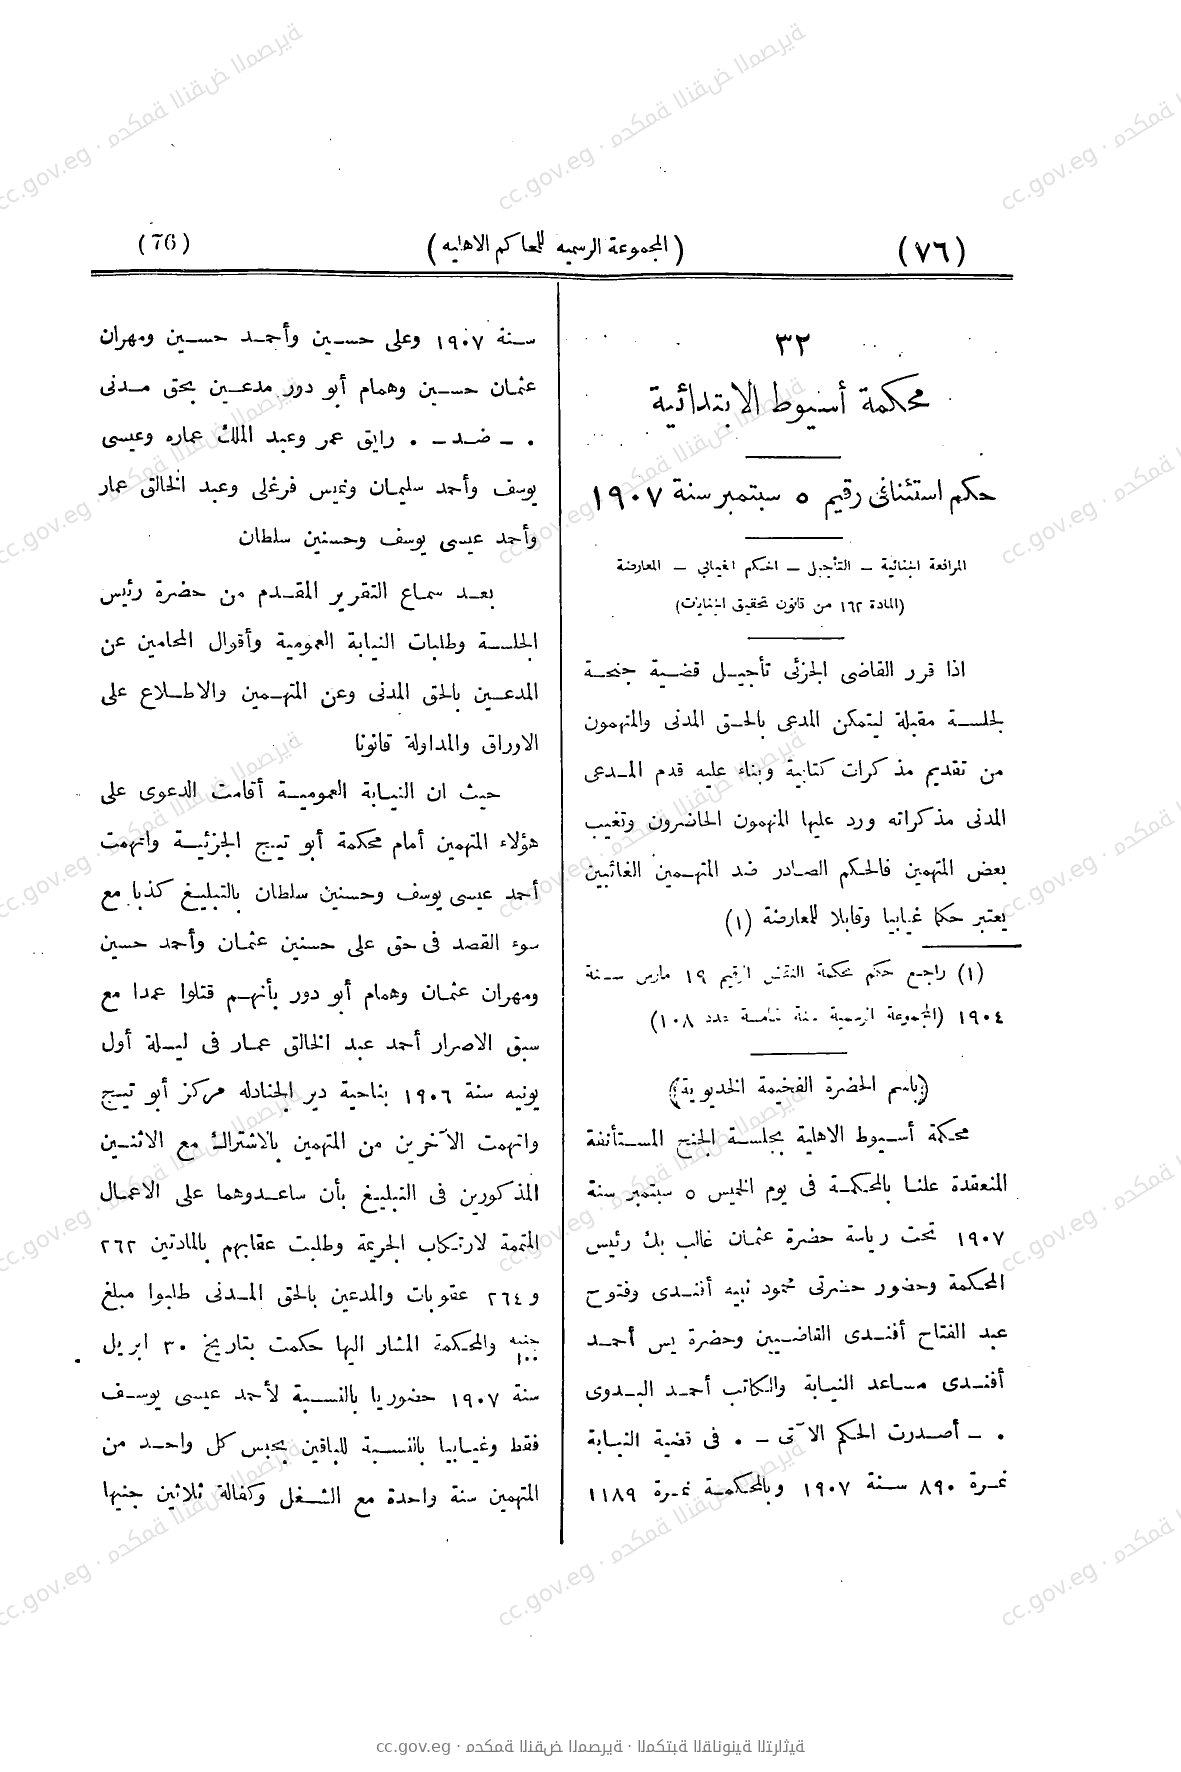 (٧٦)
(المجموعة الرسميه للمحاكم الاهليه)
(76)
٣٢
محكمة أسيوط الابتدائية
حكم استئنافى رقيم ٥ سبتمبر سنة ١٩٠٧
المرافعة الجنائية – التأجيل – الحكم الغيابي – المعارضة
(المادة ١٦٢ من قانون تحقيق الجنايات)
اذا قرر القاضى الجزئى تأجيل قضية جنحة
لجلسة مقبلة ليتمكن المدعى بالحق المدنى والمتهمون
من تقديم مذكرات كتابية وبناء عليه قدم المدعى
المدنى مذكراته ورد عليها المتهمون الحاضرون وتغيب
بعض المتهمين فالحكم الصادر ضد المتهمين الغائبين
يعتبر حكما غيابيا وقابلا للمعارضة (١)
(١) راجع حكم محكمة النقض الرقيم ١٩ مارس سنة
١٩٠٤ (المجموعة الرسمية سنة خامسة عدد ١٠٨)
(باسم الحضرة الفخيمة الخديوية)
محكمة أسيوط الاهلية بجلسة الجنح المستأنفة
المنعقدة علنا بالمحكمة فى يوم الخميس ٥ سبتمبر سنة
١٩٠٧ تحت رياسة حضرة عثمان غالب بك رئيس
المحكمة وحضور حضرتى محمود نبيه أفندى وفتوح
عبد الفتاح أفندى القاضيين وحضرة يس أحمد
أفندى مساعد النيابة والكاتب أحمد البدوى
. – أصدرت الحكم الآتى – . فى قضية النيابة
نمرة ٨٩٠ سنة ١٩٠٧ وبالمحكمة نمرة ١١٨٩
سنة ١٩٠٧ وعلى حسين وأحمد حسين ومهران
عثمان حسين وهمام أبو دور مدعين بحق مدنى
. – ضد – . رايق عمر وعبد الملك عماره وعيسى
يوسف وأحمد سليمان وخميس فرغلى وعبد الخالق عمار
وأحمد عيسى يوسف وحسنين سلطان
بعد سماع التقرير المقدم من حضرة رئيس
الجلسة وطلبات النيابة العمومية وأقوال المحامين عن
المدعين بالحق المدنى وعن المتهمين والاطلاع على
الاوراق والمداولة قانونا
حيث ان النيابة العمومية أقامت الدعوى على
هؤلاء المتهمين أمام محكمة أبو تيج الجزئية واتهمت
أحمد عيسى يوسف وحسنين سلطان بالتبليغ كذبا مع
سوء القصد فى حق على حسنين عثمان وأحمد حسين
ومهران عثمان وهمام أبو دور بأنهم قتلوا عمدا مع
سبق الاصرار أحمد عبد الخالق عمار فى ليلة أول
يونيه سنة ١٩٠٦ بناحية دير الجنادله مركز أبو تيج
واتهمت الآخرين من المتهمين بالاشتراك مع الاثنين
المذكورين فى التبليغ بأن ساعدوهما على الاعمال
المتممة لارتكاب الجريمة وطلبت عقابهم بالمادتين ٢٦٢
و ٢٦٤ عقوبات والمدعين بالحق المدنى طلبوا مبلغ
جنيه ١٠٠ والمحكمة المشار اليها حكمت بتاريخ ٣٠ ابريل
سنة ١٩٠٧ حضوريا بالنسبة لأحمد عيسى يوسف
فقط وغيابيا بالنسبة للباقين بحبس كل واحد من
المتهمين سنة واحدة مع الشغل وكفالة ثلاثين جنيها
cc.gov.eg · محكمة النقض المصرية · المكتبة القانونية التراثية